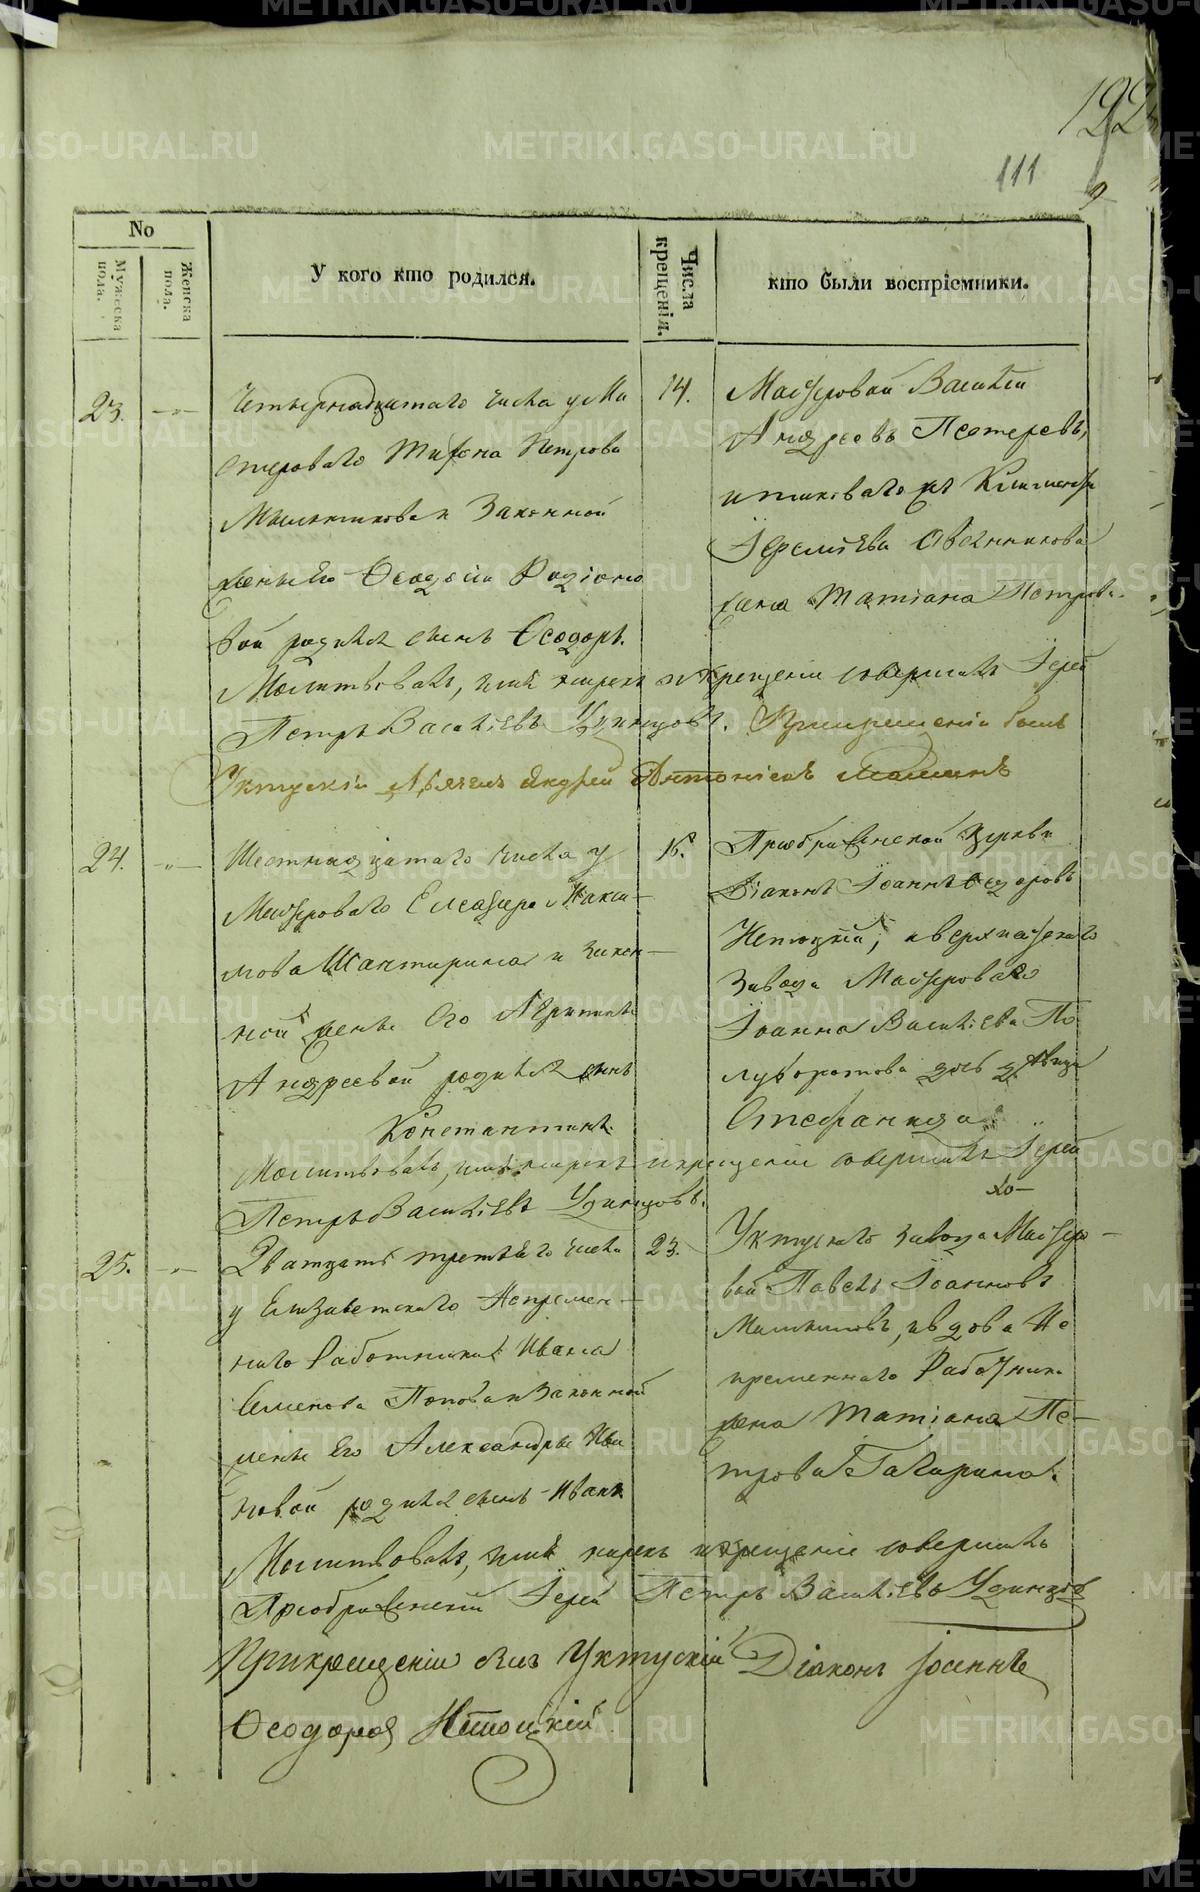 122
111
9
No
Мужеска пола.
Женска пола.
У кого кто родился.
Числа крещенія.
кто были воспріемники.
23.
Четырнадцатаго числа у Ма
стероваго Тифона Петрова
Мыльникова и Законной
жены его Ѳеодосіи Родіоно
вой родился сынъ Ѳеодоръ.
14.
Мастеровой Василій
Андреевъ Пестеревъ,
и таковаго жъ
Іереміева Овчинникова
жена Татіана Петрова.
Молитвовалъ, имя нарекъ и крещеніе совершилъ Іерей
Петръ Василіевъ Удинцовъ. При крещеніи былъ
Уктускій Дьячекъ Андрей Антоніевъ
24.
Шестнадцатаго числа у
Мастероваго Елеазара Макси-
мова Шантарина и закон-
ной жены его
Андреевой родился сынъ
Константинъ.
16.
Преображенской Церкви
Діаконъ Іоаннъ Ѳедоровъ
и Верхнейскаго
Завода Мастероваго
Іоанна Василіева По
луворотова дочь девица
Стефанида
Молитвовалъ, имя нарекъ и крещеніе совершилъ Іерей
Петръ Василіевъ Удинцовъ.
25.
Дватцать третьяго числа
у Елизаветскаго Непремен-
наго Работника Ивана
Семенова Попова и Законной
жены его Александры Ива
новой родился сынъ Иванъ
23.
Уктускаго завода Мастеро-
вой Павелъ Іоанновъ
вдова Не
пременнаго Работника
жена Татіана Пе-
трова Гагарина.
Молитвовалъ, имя нарекъ и крещеніе совершилъ
Преображенскій Іерей Петръ Василіевъ Удинцовъ
При крещеніи былъ Уктускій Діаконъ Іоаннъ
Ѳеодоровъ